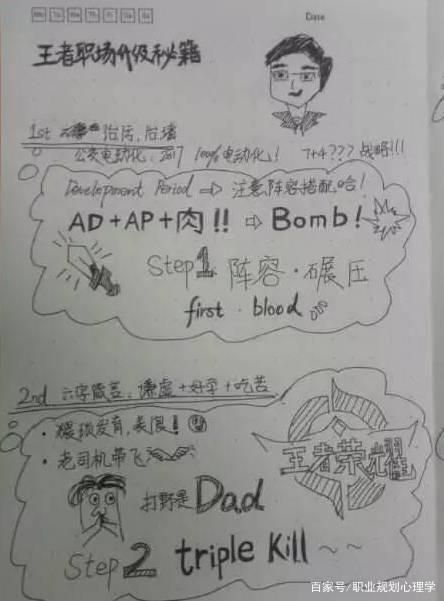 Mo Tu We Th Fr Sa Su
Date
王者职场升级秘籍
1st 治污，治堵
公交电动化：2017 100%电动化！ 7+4??? 战略!!!
Development Period ⇒ 注意阵容搭配哈！
AD+AP+肉!! ⇒ Bomb!
Step 1 阵容·碾压
first · blood
2nd 六字箴言：谦虚+好学+吃苦
· 猥琐发育，表浪！
· 老司机带飞
王者荣耀
打野是 Dad
Step 2 triple Kill ~~
百家号/职业规划心理学